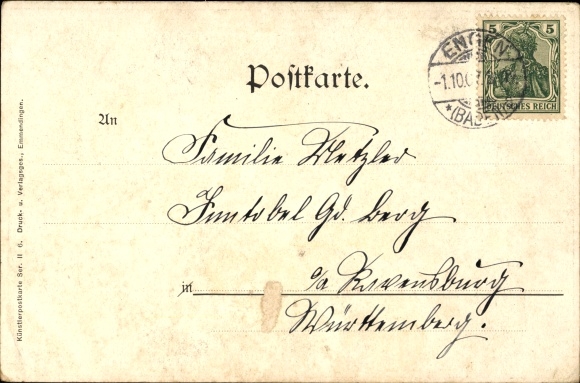 Postkarte.
5 5
DEUTSCHES REICH
ENGEN
-1.10.07
*(BADEN)
An
Familie Metzler
Inntobel Gd. Berg
in
o/a Ravensburg
Württemberg.
Künstlerpostkarte Ser. II 6. Druck- u. Verlagsges., Emmendingen.